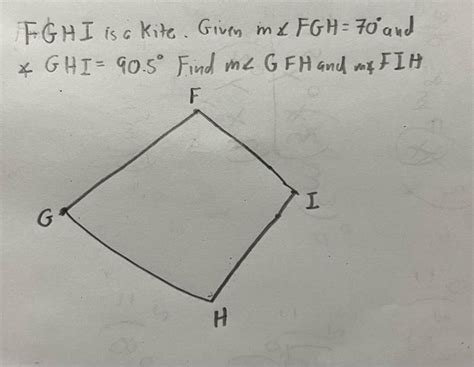 FGHI is a kite. Given m∡ FGH = 70° and
∡ GHI = 90.5° Find m∠ GFH and m∡ FIH
F
I
G
H